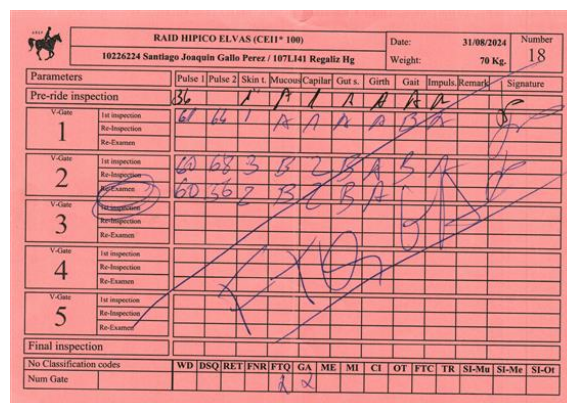 RAID HIPICO ELVAS (CEI1* 100) Date: 31/08/2024 Number
10226224 Santiago Joaquin Gallo Perez / 107LJ41 Regaliz Hg Weight: 70 Kg. 18
Parameters Pulse 1 Pulse 2 Skin t. Mucous Capilar Gut s. Girth Gait Impuls. Remark Signature
Pre-ride inspection 36 1 A 1 A A A A
V-Gate 1 1st inspection 61 64 1 A A A A B A
Re-Inspection
Re-Examen
V-Gate 2 1st inspection 60 68 3 B 2 B A B A
Re-Inspection
Re-Examen 60 56 2 B 2 B A GA
V-Gate 3 1st inspection
Re-Inspection
Re-Examen
V-Gate 4 1st inspection
Re-Inspection
Re-Examen
V-Gate 5 1st inspection
Re-Inspection
Re-Examen
Final inspection
No Classification codes WD DSQ RET FNR FTQ GA ME MI CI OT FTC TR SI-Mu SI-Me SI-Ot
Num Gate 2 2